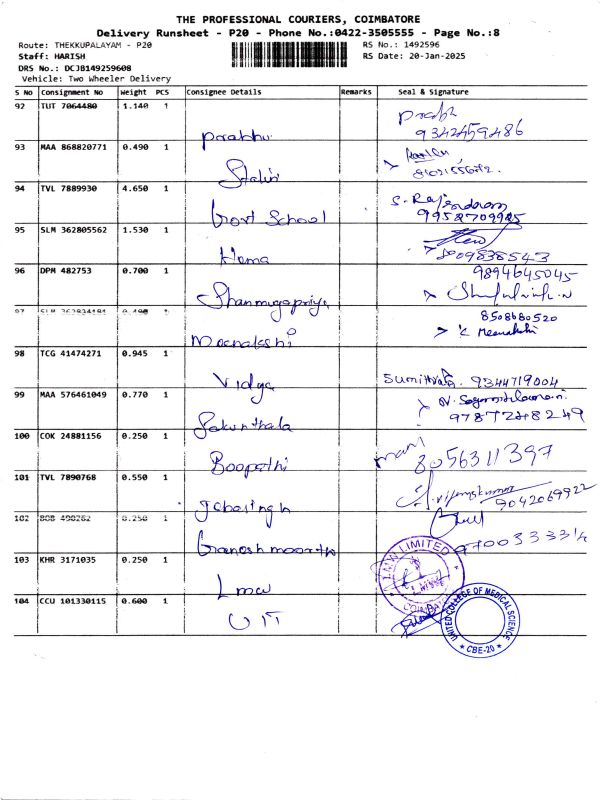 THE PROFESSIONAL COURIERS, COIMBATORE
Delivery Runsheet - P20 - Phone No.:0422-3505555 - Page No.:8
Route: THEKKUPALAYAM - P20
RS No.: 1492596
Staff: HARISH
RS Date: 20-Jan-2025
DRS No.: DCJB149259608
Vehicle: Two Wheeler Delivery
S No Consignment No Weight PCS Consignee Details Remarks Seal & Signature
92 TUT 7064480 1.140 1
Prabhu
9342459486
93 MAA 868820771 0.490 1
Stalin
94 TVL 7889930 4.650 1
Govt School
S. Rajendaran
9952709925
95 SLM 362805562 1.530 1
Hema
8009838543
96 DPM 482753 0.700 1
Shanmugapriya
9894645045
97 SLM 1
Meenakshi
8508680520
K Meenakshi
98 TCG 41474271 0.945 1
Vidya
Sumithra 9344719004
99 MAA 576461049 0.770 1
Sakunthala
9787248249
100 COK 24881156 0.250 1
Boopathi
mani
8056311397
101 TVL 7890768 0.550 1
Jebasingh
9042069922
102 BOB 490262 0.250 1
Ganesh moorthy
9700333314
103 KHR 3171035 0.250 1
Lmw
LMW LIMITED
104 CCU 101330115 0.600 1
UIT
UNITED COLLEGE OF MEDICAL SCIENCE
* CBE-20 *